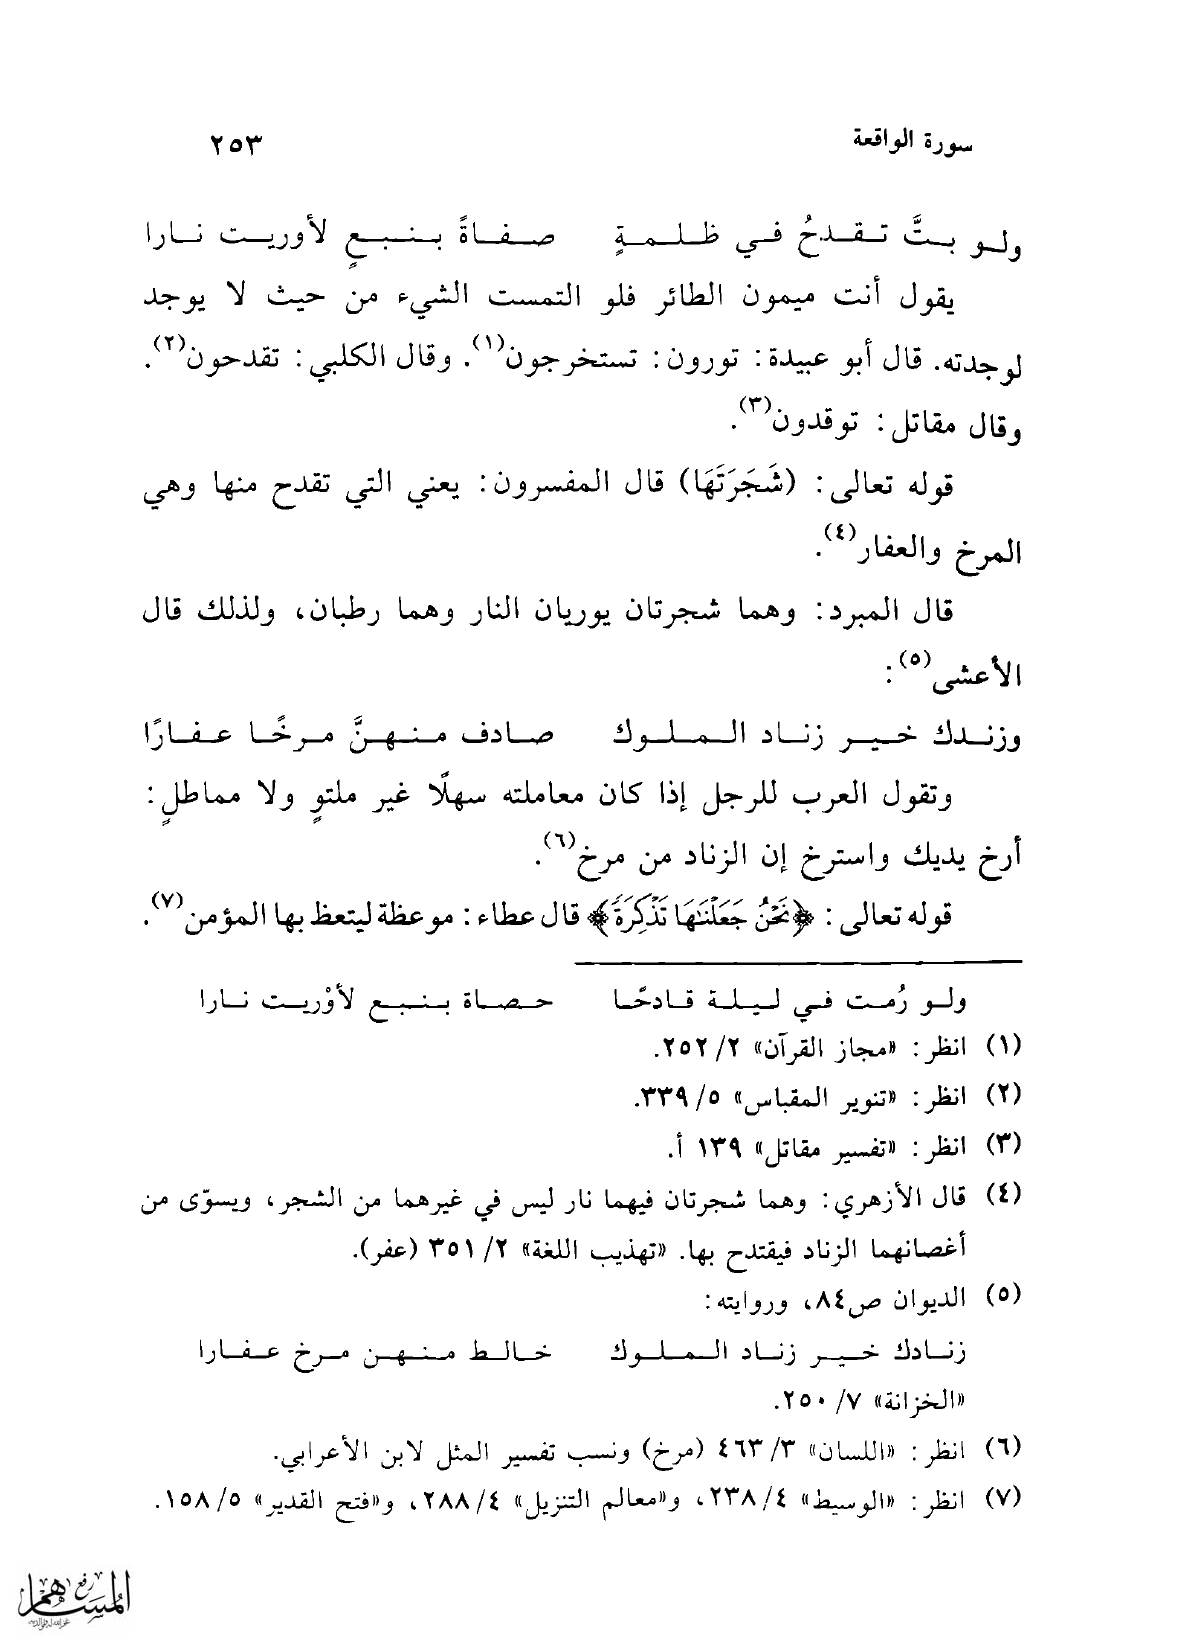 سورة الواقعة ٢٥٣
ولو بتَّ تقدحُ في ظلمةٍ صفاةً بنبعٍ لأوريت نارا
يقول أنت ميمون الطائر فلو التمست الشيء من حيث لا يوجد
لوجدته. قال أبو عبيدة: تورون: تستخرجون(١). وقال الكلبي: تقدحون(٢).
وقال مقاتل: توقدون(٣).
قوله تعالى: (شَجَرَتَهَا) قال المفسرون: يعني التي تقدح منها وهي
المرخ والعفار(٤).
قال المبرد: وهما شجرتان يوريان النار وهما رطبان، ولذلك قال
الأعشى(٥):
وزندك خير زناد الملوك صادف منهنَّ مرخًا عفارًا
وتقول العرب للرجل إذا كان معاملته سهلًا غير ملتوٍ ولا مماطلٍ:
أرخ يديك واسترخ إن الزناد من مرخ(٦).
قوله تعالى: ﴿نَحْنُ جَعَلْنَٰهَا تَذْكِرَةً﴾ قال عطاء: موعظة ليتعظ بها المؤمن(٧).
ولو رُمت في ليلة قادحًا حصاة بنبع لأوْريت نارا
(١) انظر: «مجاز القرآن» ٢/ ٢٥٢.
(٢) انظر: «تنوير المقباس» ٥/ ٣٣٩.
(٣) انظر: «تفسير مقاتل» ١٣٩ أ.
(٤) قال الأزهري: وهما شجرتان فيهما نار ليس في غيرهما من الشجر، ويسوّى من
أغصانهما الزناد فيقتدح بها. «تهذيب اللغة» ٢/ ٣٥١ (عفر).
(٥) الديوان ص٨٤، وروايته:
زنادك خير زناد الملوك خالط منهن مرخ عفارا
«الخزانة» ٧/ ٢٥٠.
(٦) انظر: «اللسان» ٣/ ٤٦٣ (مرخ) ونسب تفسير المثل لابن الأعرابي.
(٧) انظر: «الوسيط» ٤/ ٢٣٨، و«معالم التنزيل» ٤/ ٢٨٨، و«فتح القدير» ٥/ ١٥٨.
رفع
المساهم